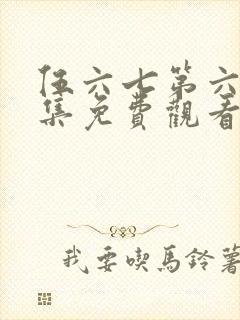 伍六七第六
集免費觀看
我要喫馬鈴薯